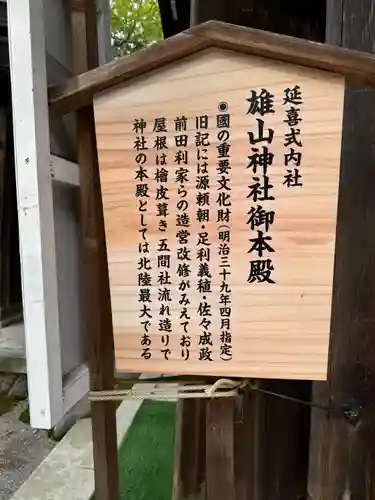 延喜式内社
雄山神社御本殿
◉國の重要文化財(明治三十九年四月指定)
旧記には源頼朝・足利義稙・佐々成政
前田利家らの造営改修がみえており
屋根は檜皮葺き 五間社流れ造りで
神社の本殿としては北陸最大である